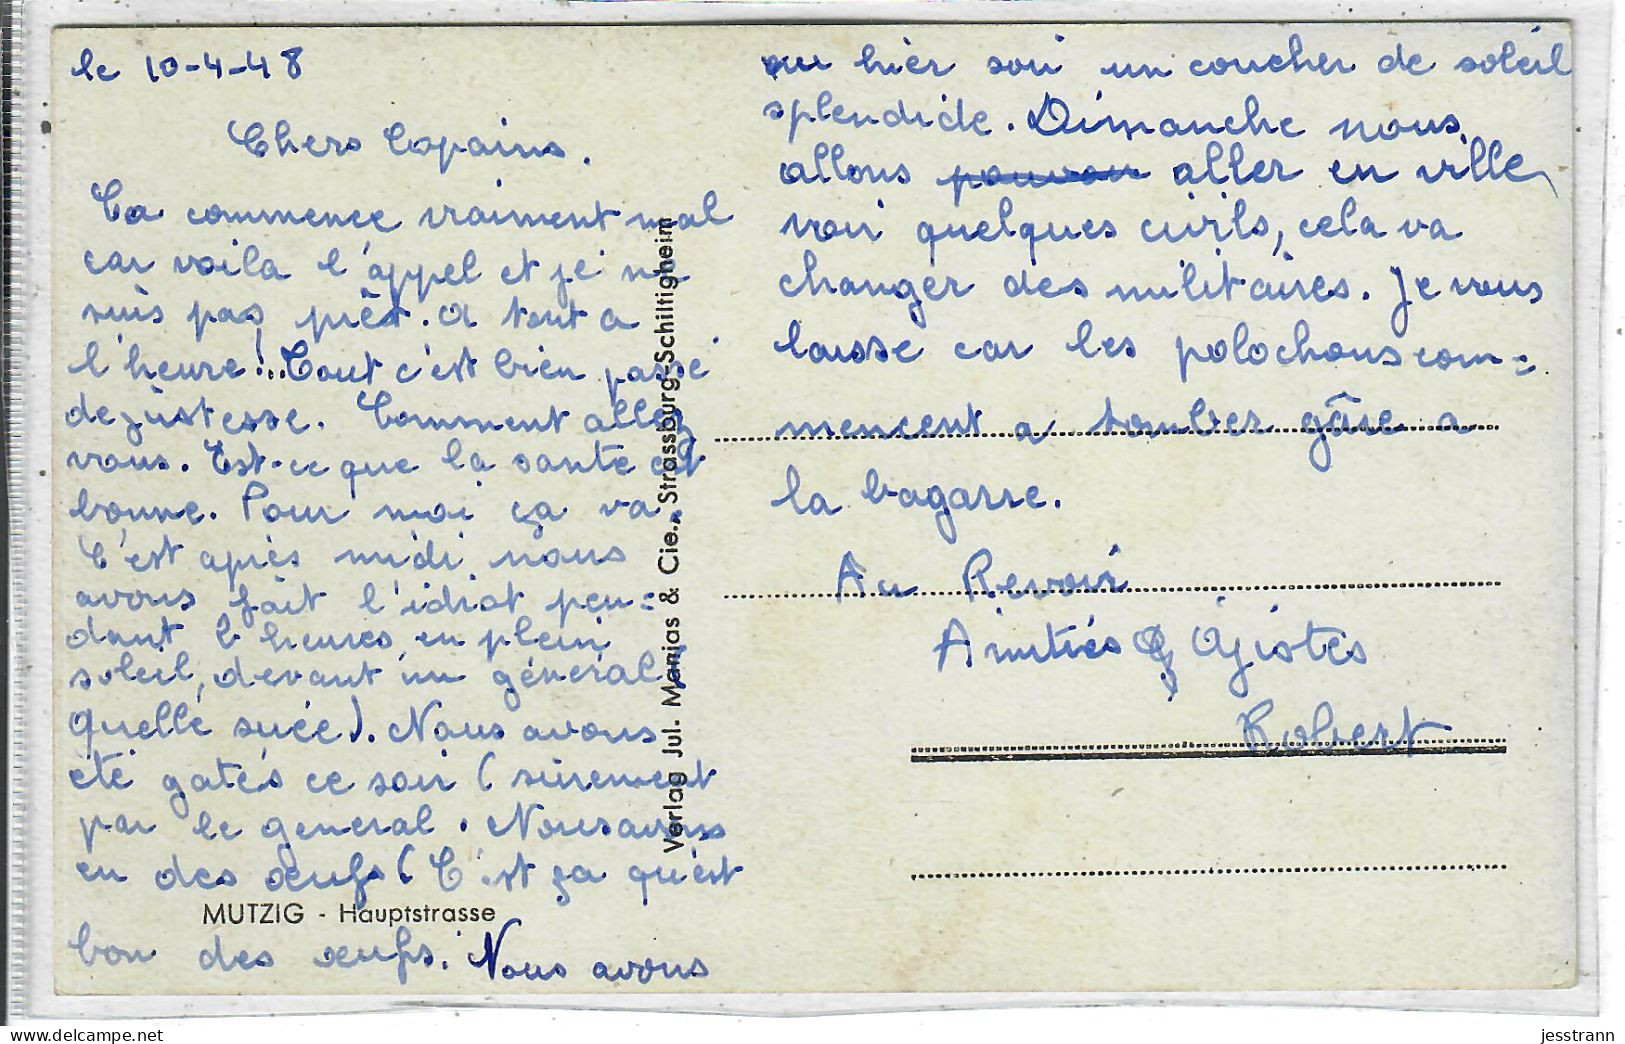 le 10-4-48
Chers Copains.
Ca commence vraiment mal
car voila l'appel et je ne
suis pas prêt. A tout a
l'heure!..Tout c'est bien passé
de justesse. Comment allez
vous. Est-ce que la santé est
bonne. Pour moi ça va.
C'est après midi nous
avons fait l'idiot pen-
dant 6 heures, en plein
soleil, devant un général,
quelle suée). Nous avons
été gatés ce soir (surement
par le general. Nous avons
eu des œufs (C'est ça qu'est
bon des œufs. Nous avons
vu hier soir un coucher de soleil
splendide. Dimanche nous
allons pouvoir aller en ville,
voir quelques civils, cela va
changer des militaires. Je vous
laisse car les polochons com-
mencent a tomber gâre a
la bagarre.
Au Revoir
Amitiés Ajistes
Robert
MUTZIG - Hauptstrasse
Verlag Jul. Manias & Cie. Strassburg-Schiltigheim
jesstrann